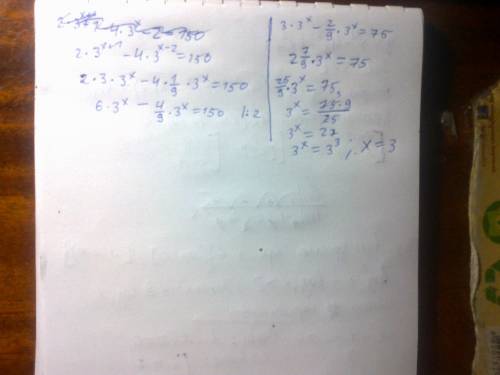 2·3ˣ⁺¹ - 4·3ˣ⁻² = 150
2·3·3ˣ - 4·1/9·3ˣ = 150
6·3ˣ - 4/9·3ˣ = 150 |:2
3·3ˣ - 2/9·3ˣ = 75
2 7/9·3ˣ = 75
25/9·3ˣ = 75,
3ˣ = 75·9/25
3ˣ = 27
3ˣ = 3³; x = 3